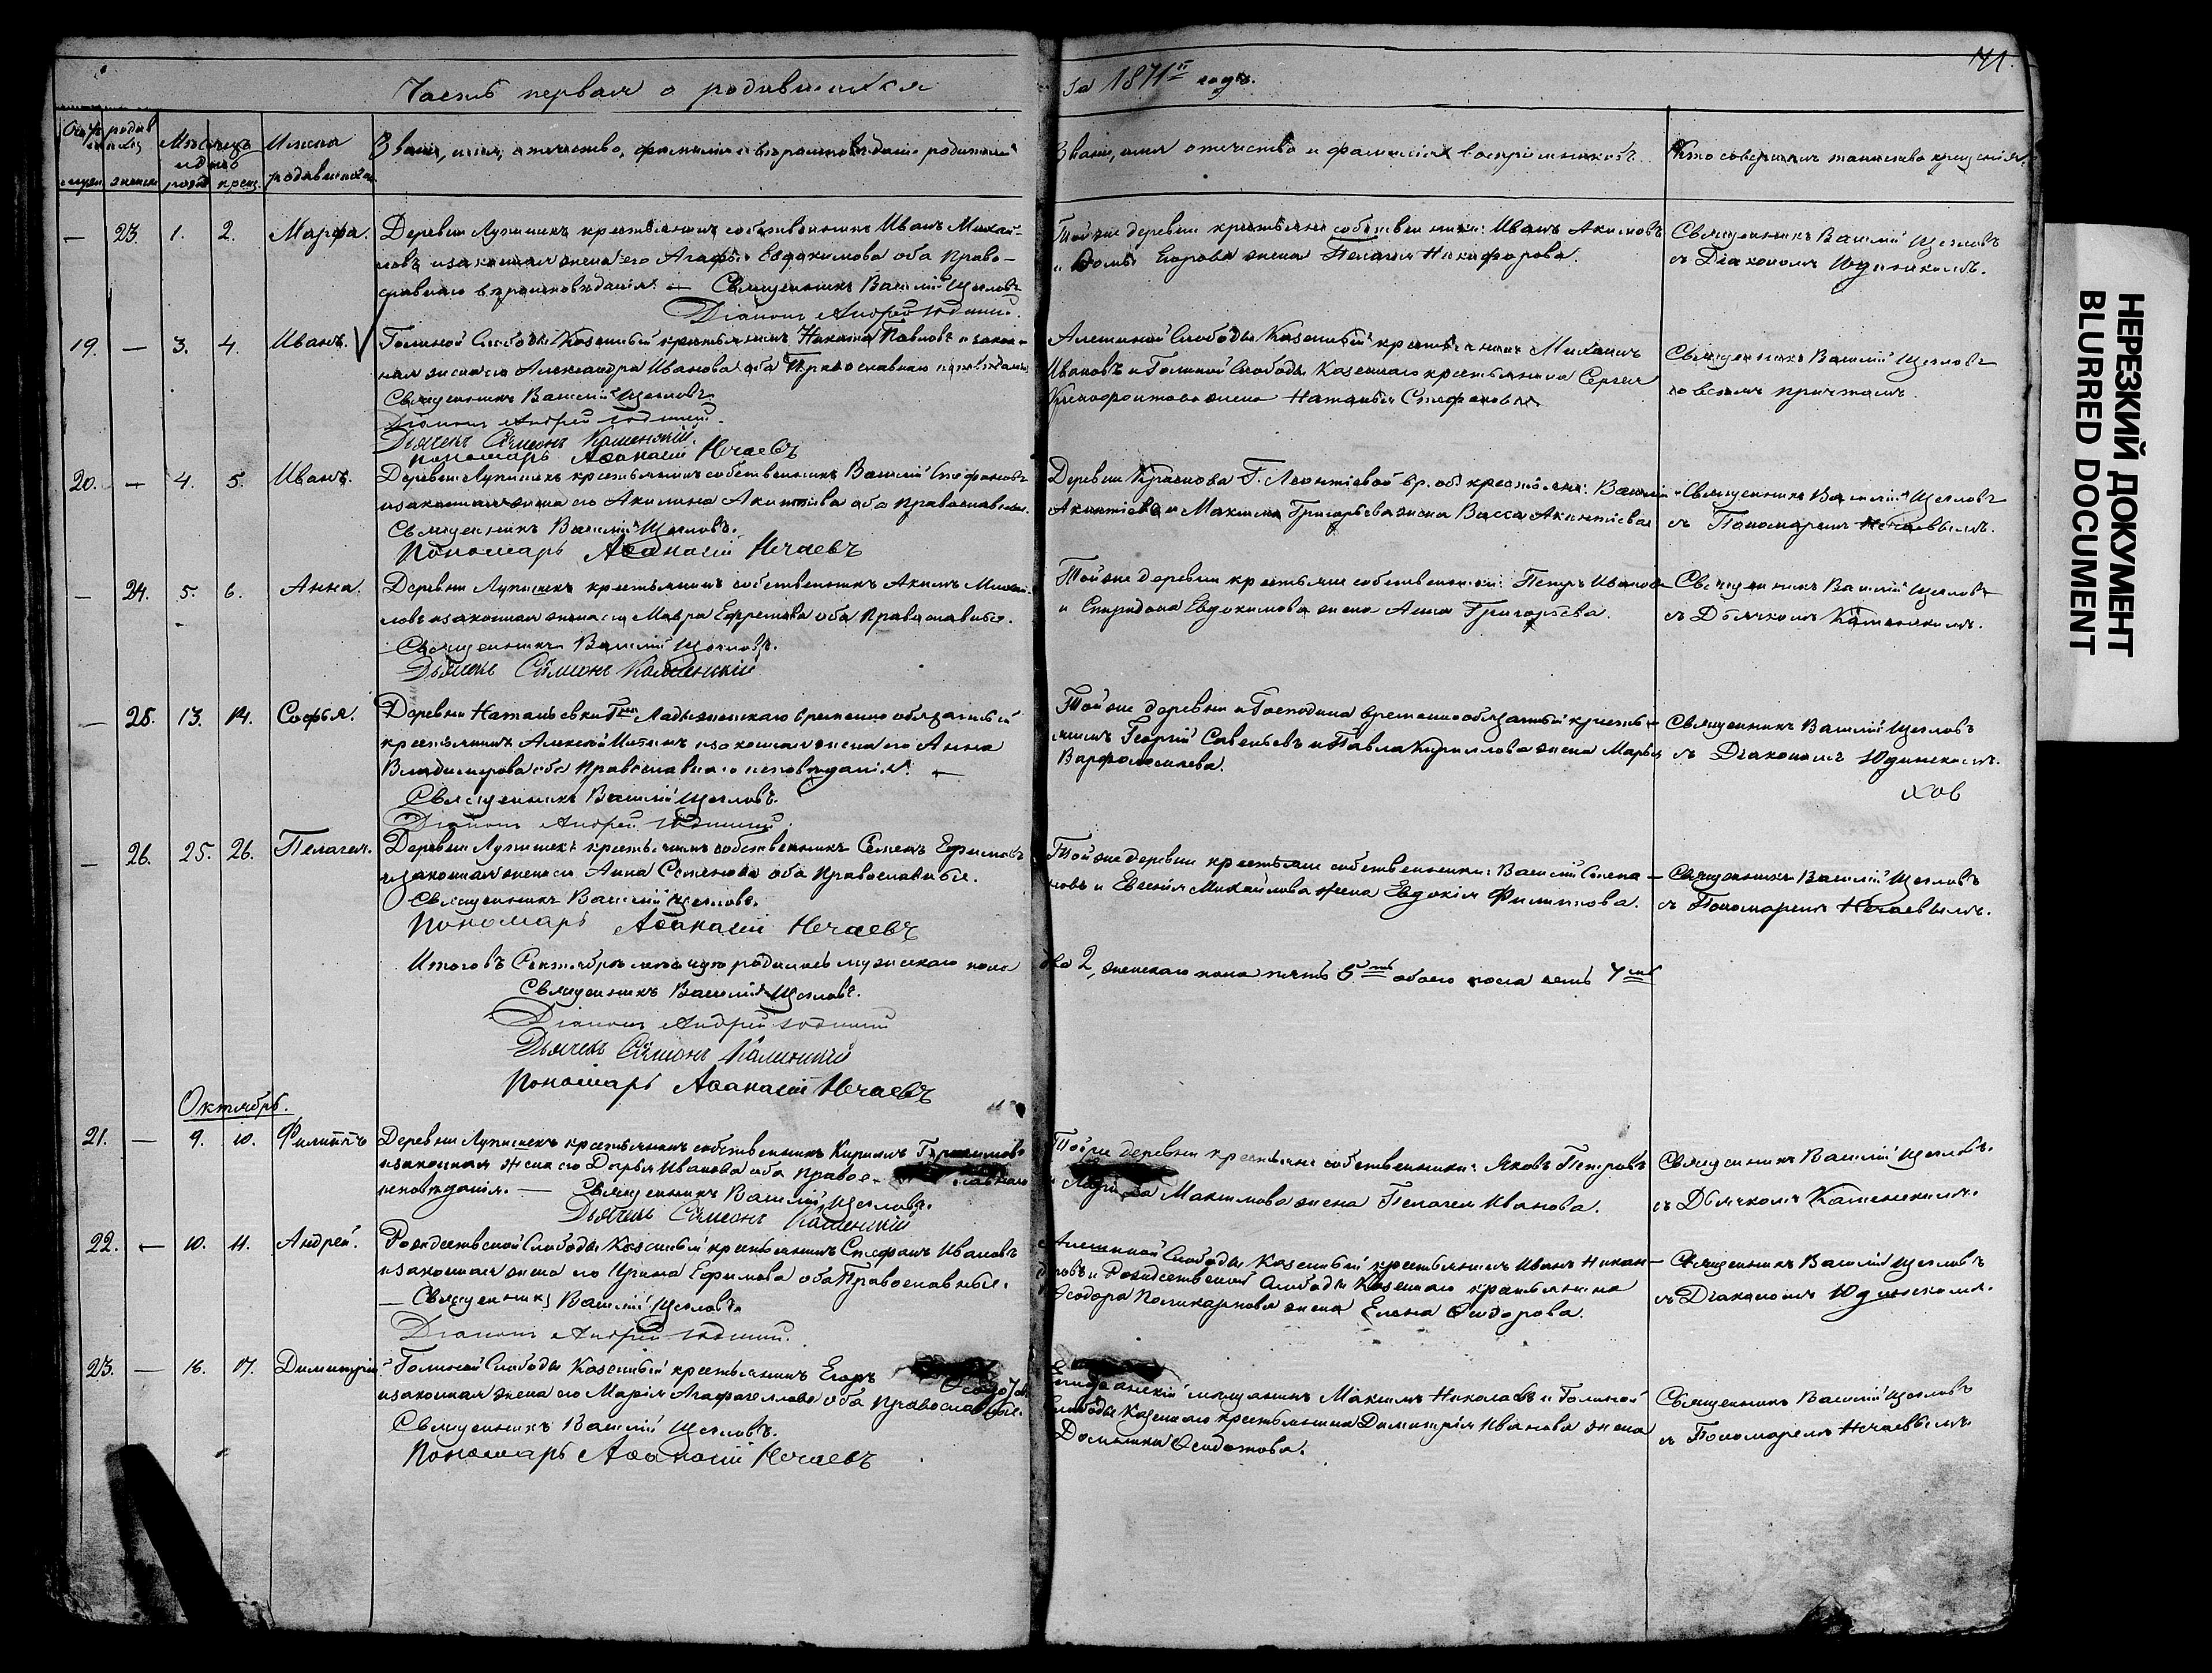 Часть первая о родившихся
за 1871й годъ.
141.
Мѣсяцъ и день
Имена родившихся
Званіе, имя, отчество, фамилія и вѣроисповѣданіе родителей
Званіе, имя отчество и фамилія воспріемниковъ.
Кто совершалъ таинство крещенія.
— 23. 1. 2. Марфа.
Деревни Лупишекъ крестьянинъ собственникъ Иванъ Михай-
ловъ и законная жена его Агафья Евдокимова оба Право-
славнаго вѣроисповѣданія. — Священникъ Василій Щегловъ
Діаконъ Андрей Юдинскій.
Той же деревни крестьяне собственники: Иванъ Акимовъ
и Ѳомы Егорова жена Пелагея Никифорова.
Священникъ Василій Щегловъ
съ Діакономъ Юдинскимъ.
19. — 3. 4. Иванъ.
Голиной Слободы Казенный крестьянинъ Никита Павловъ и закон-
ная жена его Александра Иванова оба Православнаго исповѣданія
Священникъ Василій Щегловъ
Діаконъ Андрей Юдинскій.
Дьячекъ Сѵмеонъ Каменскій.
Пономарь Аѳанасій Нечаевъ
Алешиной Слободы Казенный крестьянинъ Михаилъ
Ивановъ и Голиной Слободы Казеннаго крестьянина Сергея
Ксенофонтова жена Наталья Стефанова.
Священникъ Василій Щегловъ
со всемъ причтомъ.
20. — 4. 5. Иванъ.
Деревни Лупишекъ крестьянинъ собственникъ Василій Стефановъ
и законная жена его Акилина Акинтіева оба Православные.
Священникъ Василій Щегловъ.
Пономарь Аѳанасій Нечаевъ
Деревни Г. Леонтіевой вр. об. крестьяне: Василій
Акинтіевъ и Максима Григорьева жена Васса Акинтіева
Священникъ Василій Щегловъ
съ Пономаремъ Нечаевымъ.
— 24. 5. 6. Анна.
Деревни Лупишекъ крестьянинъ собственникъ Акимъ Михай-
ловъ и законная жена его Мавра Ефремова оба Православные.
Священникъ Василій Щегловъ.
Дьячекъ Сѵмеонъ Каменскій
Той же деревни крестьяне собственники: Петръ Ивановъ
и Спиридона Евдокимова жена Анна Григорьева.
Священникъ Василій Щегловъ
съ Дьячкомъ Каменскимъ.
— 25. 13. 14. Софья.
Деревни Натальевки Гна Ладыженскаго временно обязанный
крестьянинъ Алексѣй Никитинъ и законная жена его Анна
Владимірова оба Православнаго исповѣданія. —
Священникъ Василій Щегловъ.
Діаконъ Андрей Юдинскій.
Той же деревни и Господина временнообязанный кресть-
янинъ Георгій Савельевъ и Павла Кириллова жена Марья
Варфоломеева.
Священникъ Василій Щегловъ
съ Діакономъ Юдинскимъ.
— 26. 25. 26. Пелагея.
Деревни Лупишекъ крестьянинъ собственникъ Семенъ Ефимовъ
и законная жена его Анна Семенова оба Православные.
Священникъ Василій Щегловъ.
Пономарь Аѳанасій Нечаевъ
Той же деревни крестьяне собственники: Василій Степа-
новъ и Евсевія Михайлова жена Евдокія Филиппова.
Священникъ Василій Щегловъ
съ Пономаремъ Нечаевымъ.
Итого въ Сентябрѣ мѣсяцѣ родилось мужескаго пола
два 2, женскаго пола пять 5ть обоего пола семь 7мь
Священникъ Василій Щегловъ.
Діаконъ Андрей Юдинскій
Дьячекъ Сѵмеонъ Каменскій
Пономарь Аѳанасій Нечаевъ
Октябрь.
21. — 9. 10. Филиппъ
Деревни Лупишекъ крестьянинъ собственникъ Кириллъ Герасимовъ
и законная жена его Дарья Иванова оба Правос-лавнаго
исповѣданія. — Священникъ Василій Щегловъ.
Дьячекъ Сѵмеонъ Каменскій
Той же деревни крестьяне собственники: Яковъ Петровъ
Максимова жена Пелагея Иванова.
Священникъ Василій Щегловъ.
съ Дьячкомъ Каменскимъ.
22. — 10. 11. Андрей.
Рождественской Слободы Казенный крестьянинъ Стефанъ Ивановъ
и законная жена его Ирина Ефимова оба Православные.
— Священникъ Василій Щегловъ
Діаконъ Андрей Юдинскій.
Алешиной Слободы Казенный крестьянинъ Иванъ Никан-
ровъ и Рождественской Слободы Казеннаго крестьянина
Ѳеодора Поликарпова жена Елена Ѳедорова.
Священникъ Василій Щегловъ
съ Діакономъ Юдинскимъ.
23. — 16. 17. Димитрій
Голиной Слободы Казенный крестьянинъ Егоръ
и законная жена его Марія Агафангелова оба Православные.
Священникъ Василій Щегловъ.
Пономарь Аѳанасій Нечаевъ
Епифанскій мѣщанинъ Максимъ Николаевъ и Голиной
Слободы Казеннаго крестьянина Димитрія Иванова жена
Домникія Ѳедотова.
Священникъ Василій Щегловъ
съ Пономаремъ Нечаевымъ
НЕРЕЗКИЙ ДОКУМЕНТ
BLURRED DOCUMENT